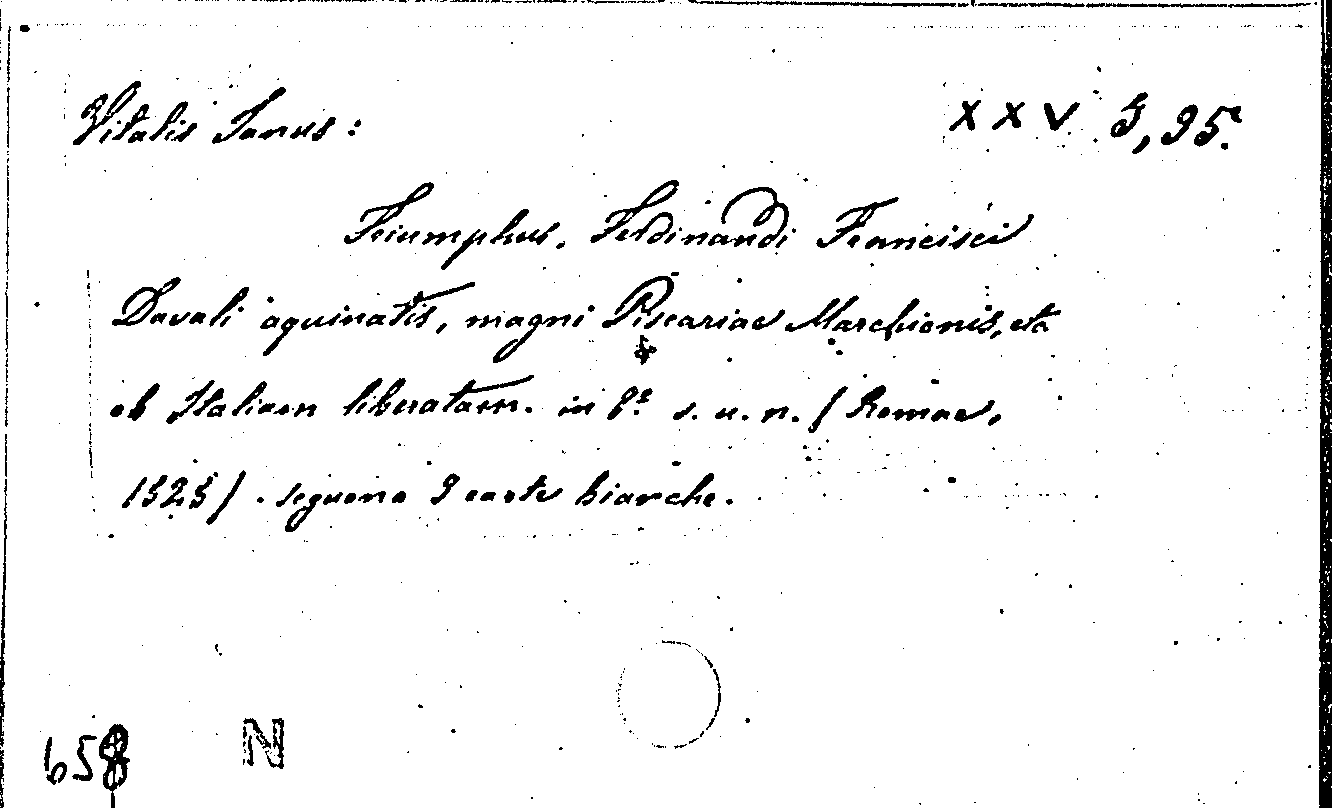 Vitalis Janus: XXV G, 95.
Triumphus, Ferdinandi Francisci
Davali aquinatis, magni Piscariae Marchionis, etc
ob Italiam liberatam. in 8º s. u. n. / Romae,
1525/. seguono 3 carte bianche.
658 N